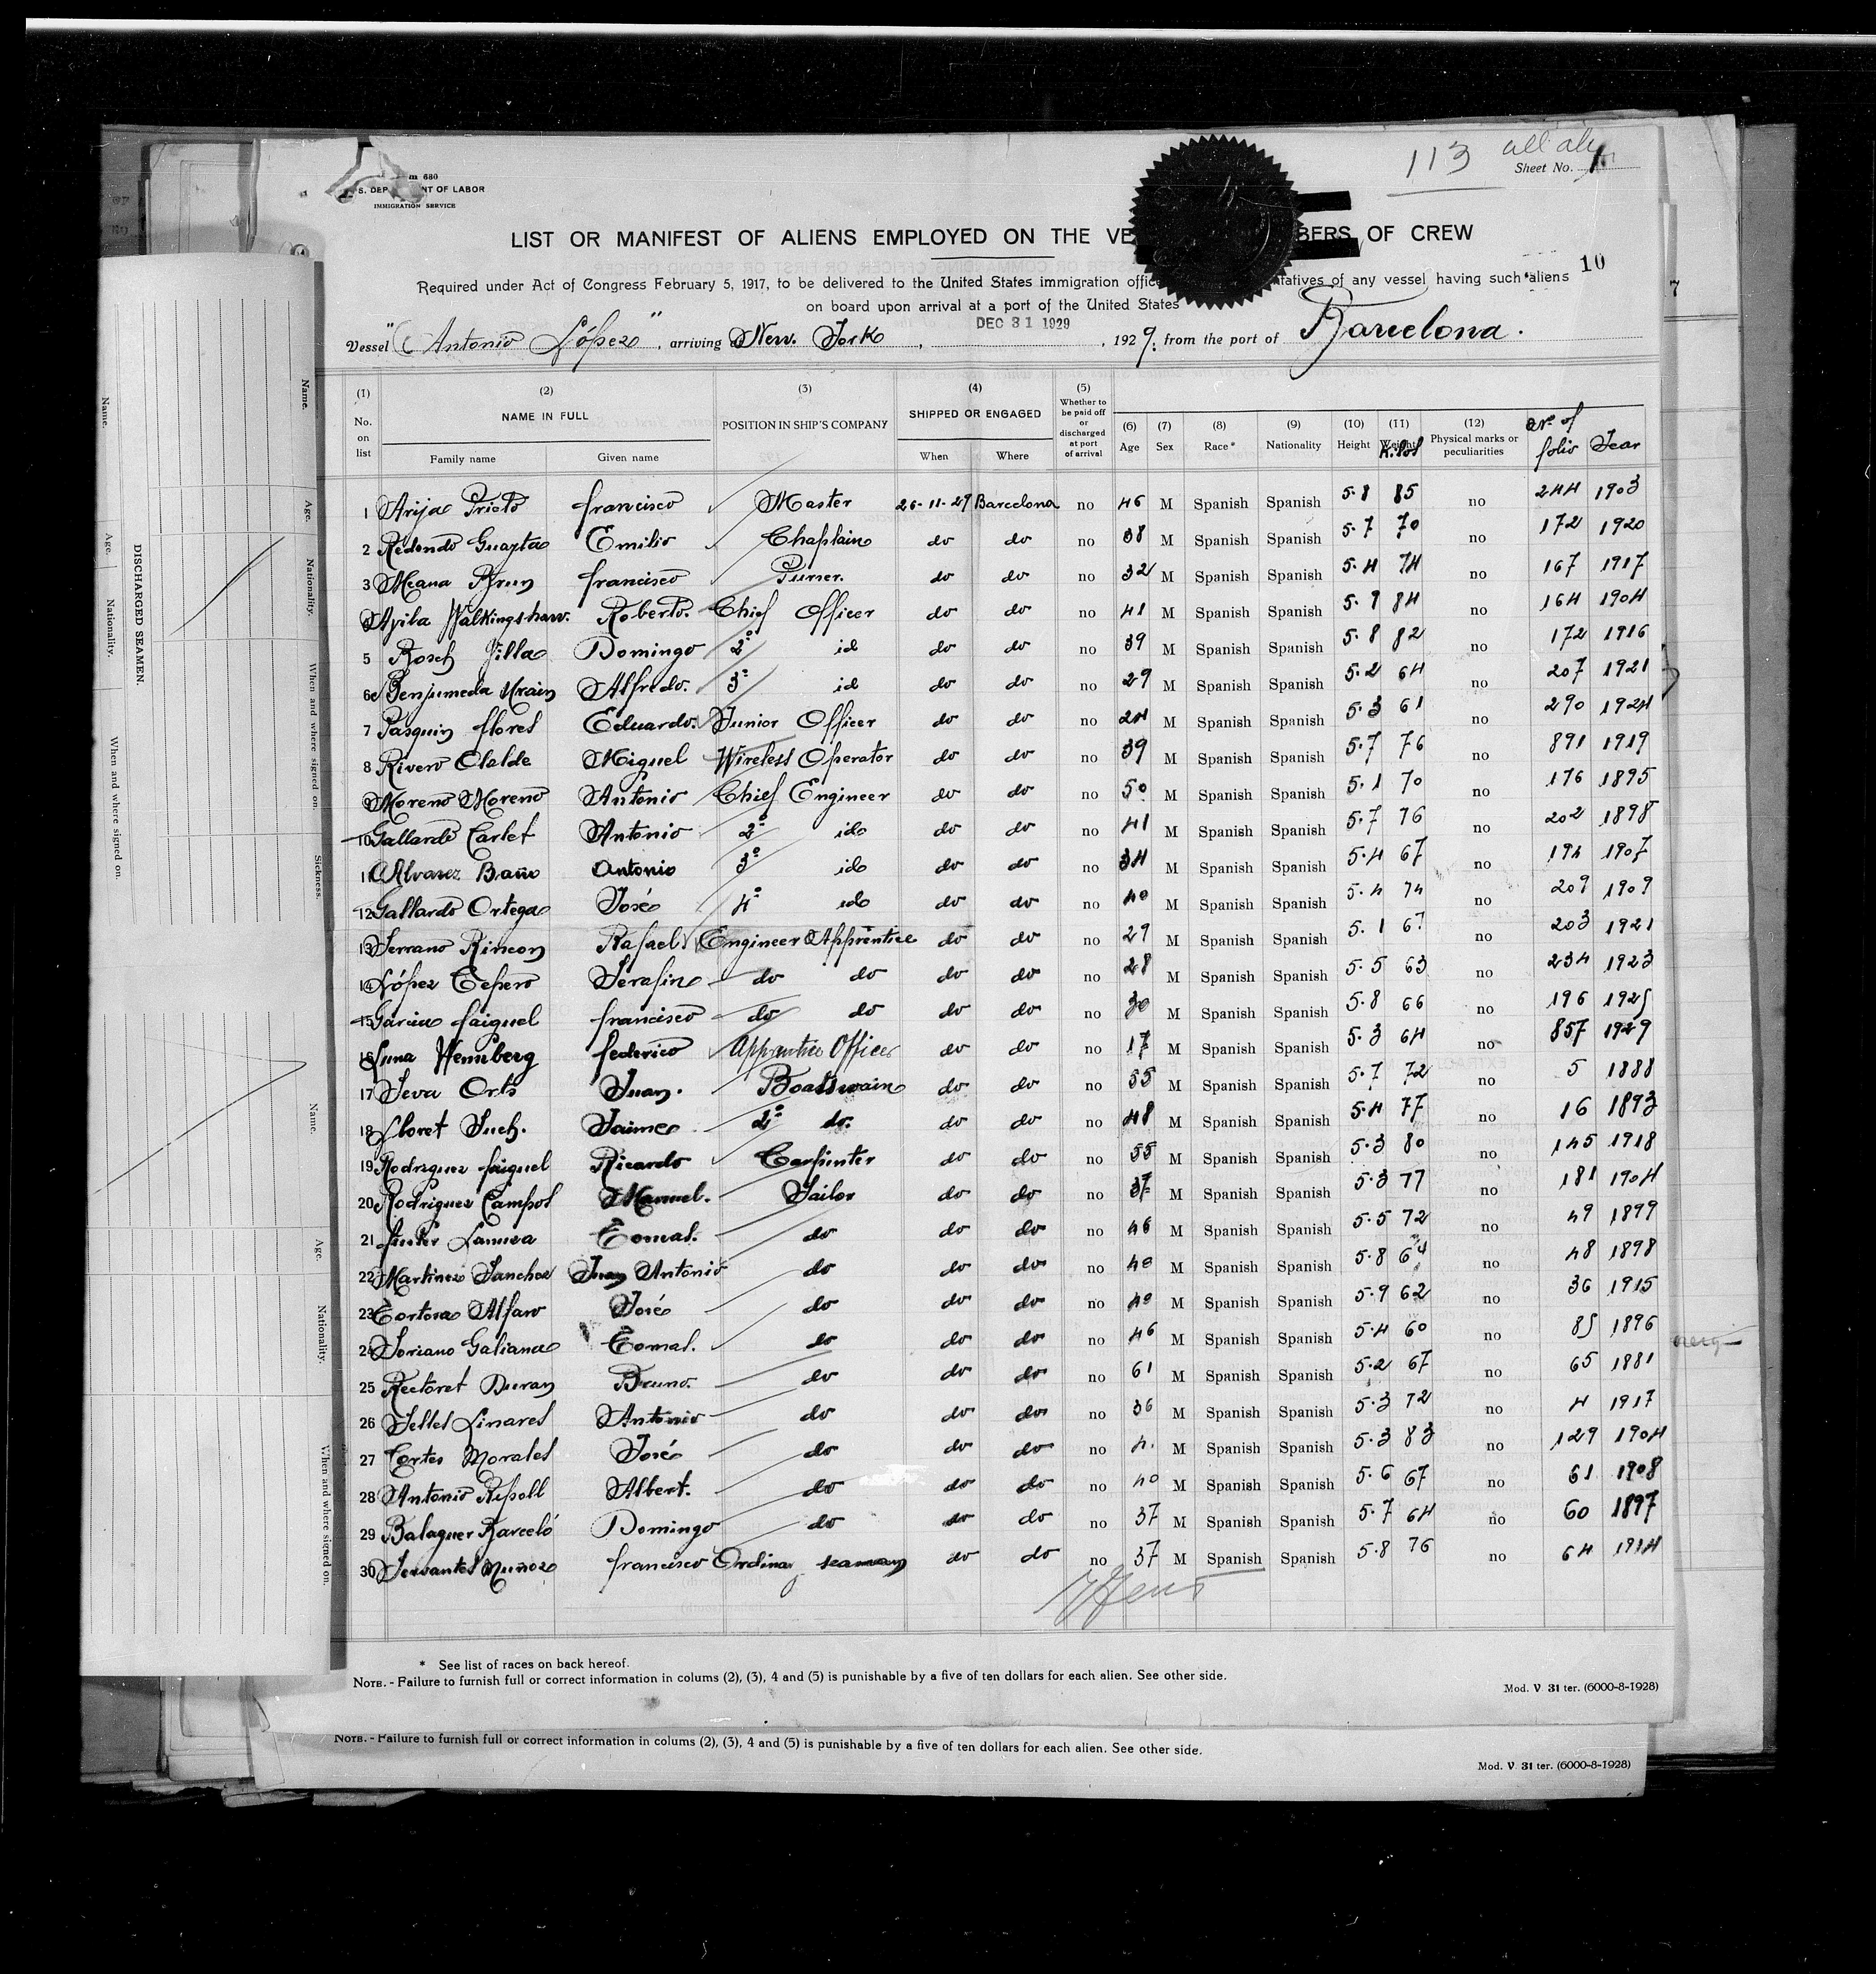 113 all
Sheet No. 1
m 680
S. DEP NT OF LABOR
IMMIGRATION SERVICE
LIST OR MANIFEST OF ALIENS EMPLOYED ON THE VE BERS OF CREW
10
Required under Act of Congress February 5, 1917, to be delivered to the United States immigration office tatives of any vessel having such aliens
on board upon arrival at a port of the United States
DEC 31 1929
Vessel "Antonio López", arriving at New York, , 1929, from the port of Barcelona.
(1) (2) (3) (4) (5)
No. on list NAME IN FULL POSITION IN SHIP'S COMPANY SHIPPED OR ENGAGED Whether to be paid off or discharged at port of arrival (6) Age (7) Sex (8) Race* (9) Nationality (10) Height (11) Weight Kilos (12) Physical marks or peculiarities nº of folio Year
Family name Given name When Where
1 Arija Prieto Francisco Master 26-11-29 Barcelona no 46 M Spanish Spanish 5.8 85 no 244 1903
2 Redondo Emilio Chaplain do do no 38 M Spanish Spanish 5.7 70 no 172 1920
3 Meana Brun Francisco Purser. do do no 32 M Spanish Spanish 5.4 74 no 167 1917
4 Avila Walkingshaw. Roberto. Chief Officer do do no 41 M Spanish Spanish 5.9 84 no 164 1904
5 Bosch Domingo 2º id do do no 39 M Spanish Spanish 5.8 82 no 172 1916
6 Benjumeda Alfredo. 3º id do do no 29 M Spanish Spanish 5.2 64 no 207 1921
7 Pasquin Flores Eduardo. Junior Officer do do no 24 M Spanish Spanish 5.3 61 no 290 1924
8 Rivero Olalde Miguel Wireless Operator do do no 39 M Spanish Spanish 5.7 76 no 891 1919
9 Moreno Moreno Antonio Chief Engineer do do no 50 M Spanish Spanish 5.1 70 no 176 1895
10 Gallardo Carlet Antonio 2º id do do no 41 M Spanish Spanish 5.7 76 no 202 1898
11 Alvarez Baño Antonio 3º id do do no 34 M Spanish Spanish 5.4 67 no 194 1907
12 Gallardo Ortega José 4º id do do no 40 M Spanish Spanish 5.4 74 no 209 1909
13 Serrano Rincon Rafael Engineer Apprentice do do no 29 M Spanish Spanish 5.1 67 no 203 1921
14 López Tepero Serafin do do do do no 28 M Spanish Spanish 5.5 63 no 234 1923
15 Garcia Faiguel Francisco do do do do no 30 M Spanish Spanish 5.8 66 no 196 1925
16 Luna Federico Apprentice Officer do do no 17 M Spanish Spanish 5.3 64 no 857 1929
17 Seva Orts Juan. Boatswain do do no 55 M Spanish Spanish 5.7 72 no 5 1888
18 Lloret Such. Jaime 2º do. do do no 48 M Spanish Spanish 5.4 77 no 16 1893
19 Rodriguez Faiguel Ricardo Carpinter do do no 55 M Spanish Spanish 5.3 80 no 145 1918
20 Rodriguez Campos Manuel. Sailor do do no 37 M Spanish Spanish 5.3 77 no 181 1904
21 Tomas. do do do no 46 M Spanish Spanish 5.5 72 no 49 1899
22 Martinez Sanchez Juan Antonio do do do no 40 M Spanish Spanish 5.8 64 no 48 1898
23 Tortosa Alfaro José do do do no 40 M Spanish Spanish 5.9 62 no 36 1915
24 Soriano Galiana Tomas. do do do no 46 M Spanish Spanish 5.4 60 no 85 1896
25 Rectoret Duran Bruno. do do do no 61 M Spanish Spanish 5.2 67 no 65 1881
26 Selles Linares Antonio do do do no 36 M Spanish Spanish 5.3 72 no 4 1917
27 Cortes Morales José do do do no M Spanish Spanish 5.3 83 no 129 1904
28 Antonio Ripoll Albert. do do do no 40 M Spanish Spanish 5.6 67 no 61 1908
29 Balaguer Barceló Domingo do do do no 37 M Spanish Spanish 5.7 64 no 60 1897
30 Servantes Muñoz Francisco Ordinay seaman do do no 37 M Spanish Spanish 5.8 76 no 64 1914
* See list of races on back hereof.
NOTE. - Failure to furnish full or correct information in colums (2), (3), 4 and (5) is punishable by a five of ten dollars for each alien. See other side.
Mod. V. 31 ter. (6000-8-1928)
NOTE. - Failure to furnish full or correct information in colums (2), (3), 4 and (5) is punishable by a five of ten dollars for each alien. See other side.
Mod. V. 31 ter. (6000-8-1928)
DISCHARGED SEAMEN.
Name.
Age.
Nationality.
When and where signed on.
Name.
Age.
Nationality.
When and where signed on
Sickness.
Name.
Age.
Nationality.
When and where signed on.
7